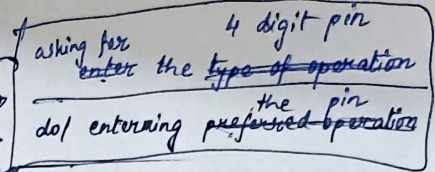 asking for 4 digit pin
enter the type of operation
the pin
do/ enterming preferred operation